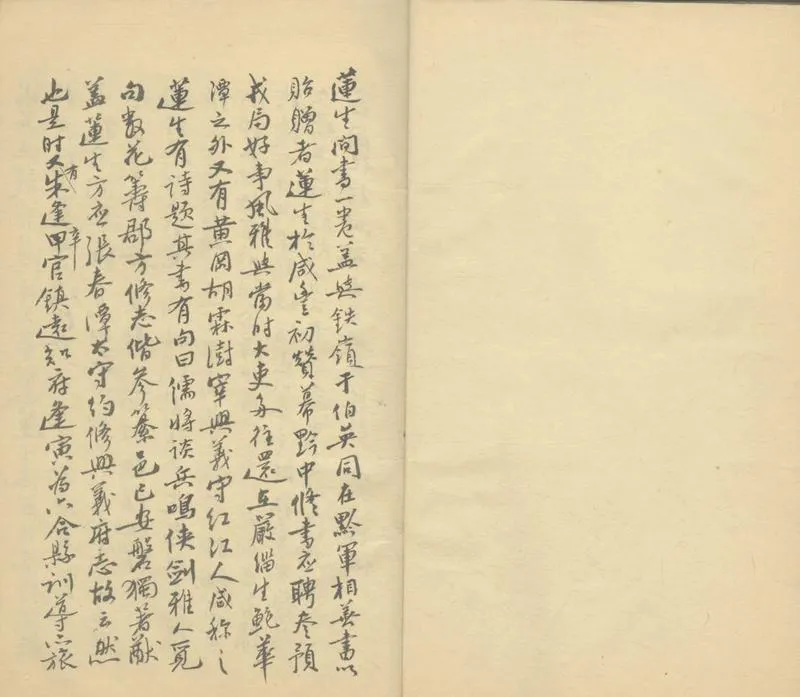 蓮生間書一卷蓋與鉄嶺于伯英同在黔軍相善畫以
貽贈者蓮生於咸豐初贊幕黔中修書應聘參預
戎局好事風雅與當時大吏多往還在嚴緇生鮑華
潭之外又有黃岡胡霖澍宰興義守紅江人咸称之
蓮生有詩題其書有句曰儒將談兵鳴俠劍雅人覓
句數花籌郡方修志偕參纂邑已安磐獨著猷
蓋蓮生方应張春潭太守約修興義府志故云然
也是时又有朱逢甲宰官鎮遠知府逢寅為六合縣訓導亦旅